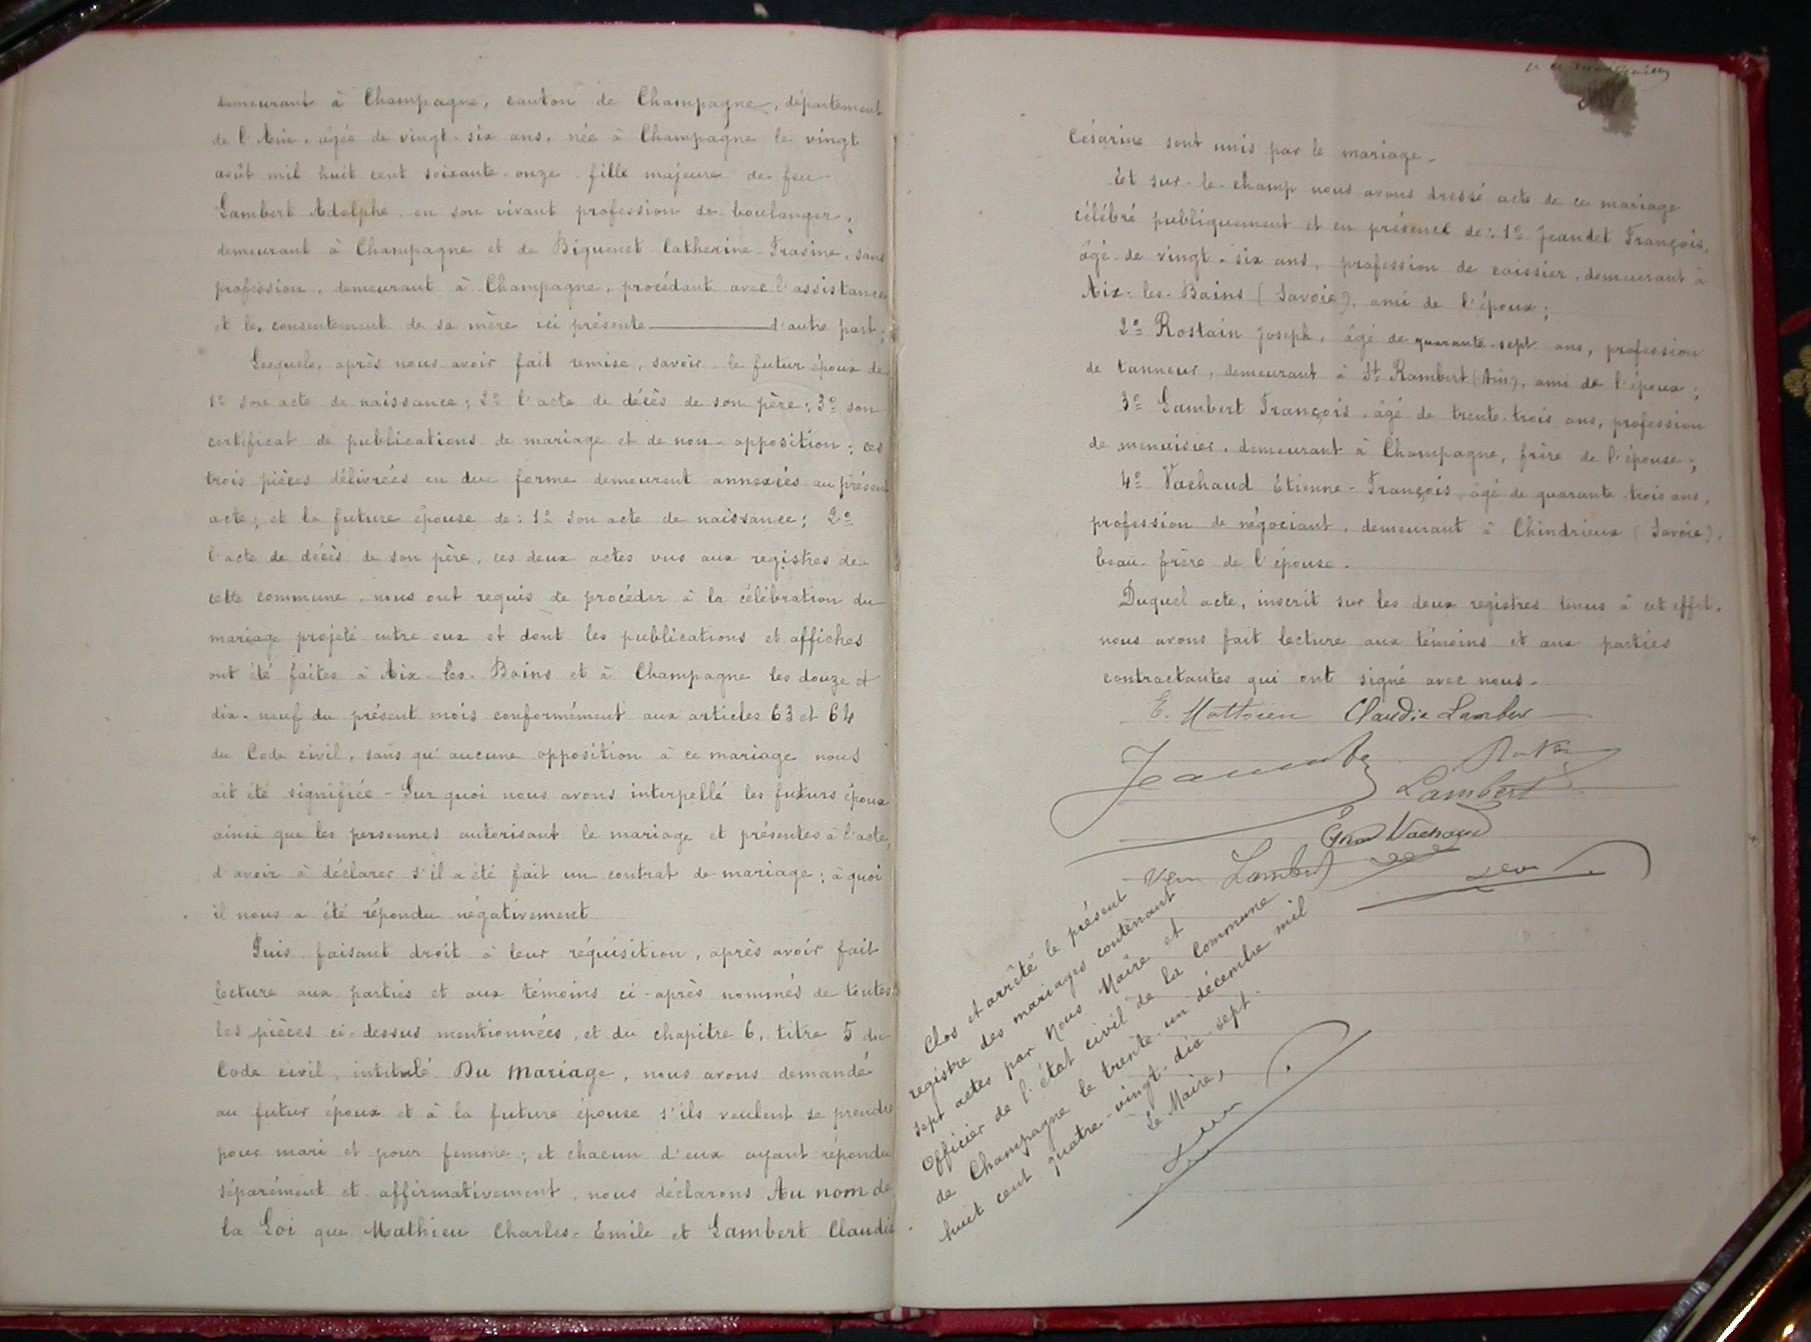 demeurant à Champagne, canton de Champagne, département
de l'Ain, âgée de vingt-six ans, née à Champagne le vingt
août mil huit cent soixante-onze, fille majeure de feu
Lambert Adolphe en son vivant profession de boulanger,
demeurant à Champagne et de Biguenet Catherine-Frasine, sans
profession, demeurant à Champagne, procédant avec l'assistance
et le consentement de sa mère ici présente d'autre part;
Lesquels, après nous avoir fait remise, savoir le futur époux de
1º son acte de naissance; 2º l'acte de décès de son père; 3º son
certificat de publications de mariage et de non-opposition; ces
trois pièces délivrées en due forme demeurent annexées au présent
acte; et la future épouse de: 1º son acte de naissance; 2º
l'acte de décès de son père, ces deux actes vus aux registres de
cette commune, nous ont requis de procéder à la célébration du
mariage projeté entre eux et dont les publications et affiches
ont été faites à Aix-les-Bains et à Champagne les douze et
dix-neuf du présent mois conformément aux articles 63 et 64
du Code civil, sans qu'aucune opposition à ce mariage nous
ait été signifiée - Sur quoi nous avons interpellé les futurs époux
ainsi que les personnes autorisant le mariage et présentes à l'acte,
d'avoir à déclarer s'il a été fait un contrat de mariage; à quoi
il nous a été répondu négativement
Puis faisant droit à leur réquisition, après avoir fait
lecture aux parties et aux témoins ci-après nommés de toutes
les pièces ci-dessus mentionnées, et du chapitre 6, titre 5 du
Code civil, intitulé Du Mariage, nous avons demandé
au futur époux et à la future épouse s'ils veulent se prendre
pour mari et pour femme; et chacun d'eux ayant répondu
séparément et affirmativement, nous déclarons Au nom de
la Loi que Mathieu Charles-Emile et Lambert Claudie
Césarine sont unis par le mariage.
Et sur-le-champ nous avons dressé acte de ce mariage
célébré publiquement et en présence de: 1º Jeandet François,
âgé de vingt-six ans, profession de caissier, demeurant à
Aix-les-Bains (Savoie), ami de l'époux;
2º Rostain Joseph, âgé de quarante-sept ans, profession
de tanneur, demeurant à St Rambert (Ain), ami de l'époux;
3º Lambert François, âgé de trente-trois ans, profession
de menuisier, demeurant à Champagne, frère de l'épouse;
4º Vachaud Etienne-François, âgé de quarante-trois ans,
profession de négociant, demeurant à Chindrieux (Savoie),
beau-frère de l'épouse.
Duquel acte, inscrit sur les deux registres tenus à cet effet,
nous avons fait lecture aux témoins et aux parties
contractantes qui ont signé avec nous.
E. Mathieu Claudia Lambert
Lambert
Vachaud
Lambert
Clos et arrêté le présent
registre des mariages contenant
sept actes par Nous Maire et
Officier de l'état civil de la Commune
de Champagne le trente-un décembre mil
huit cent quatre-vingt-dix-sept.
Le Maire,